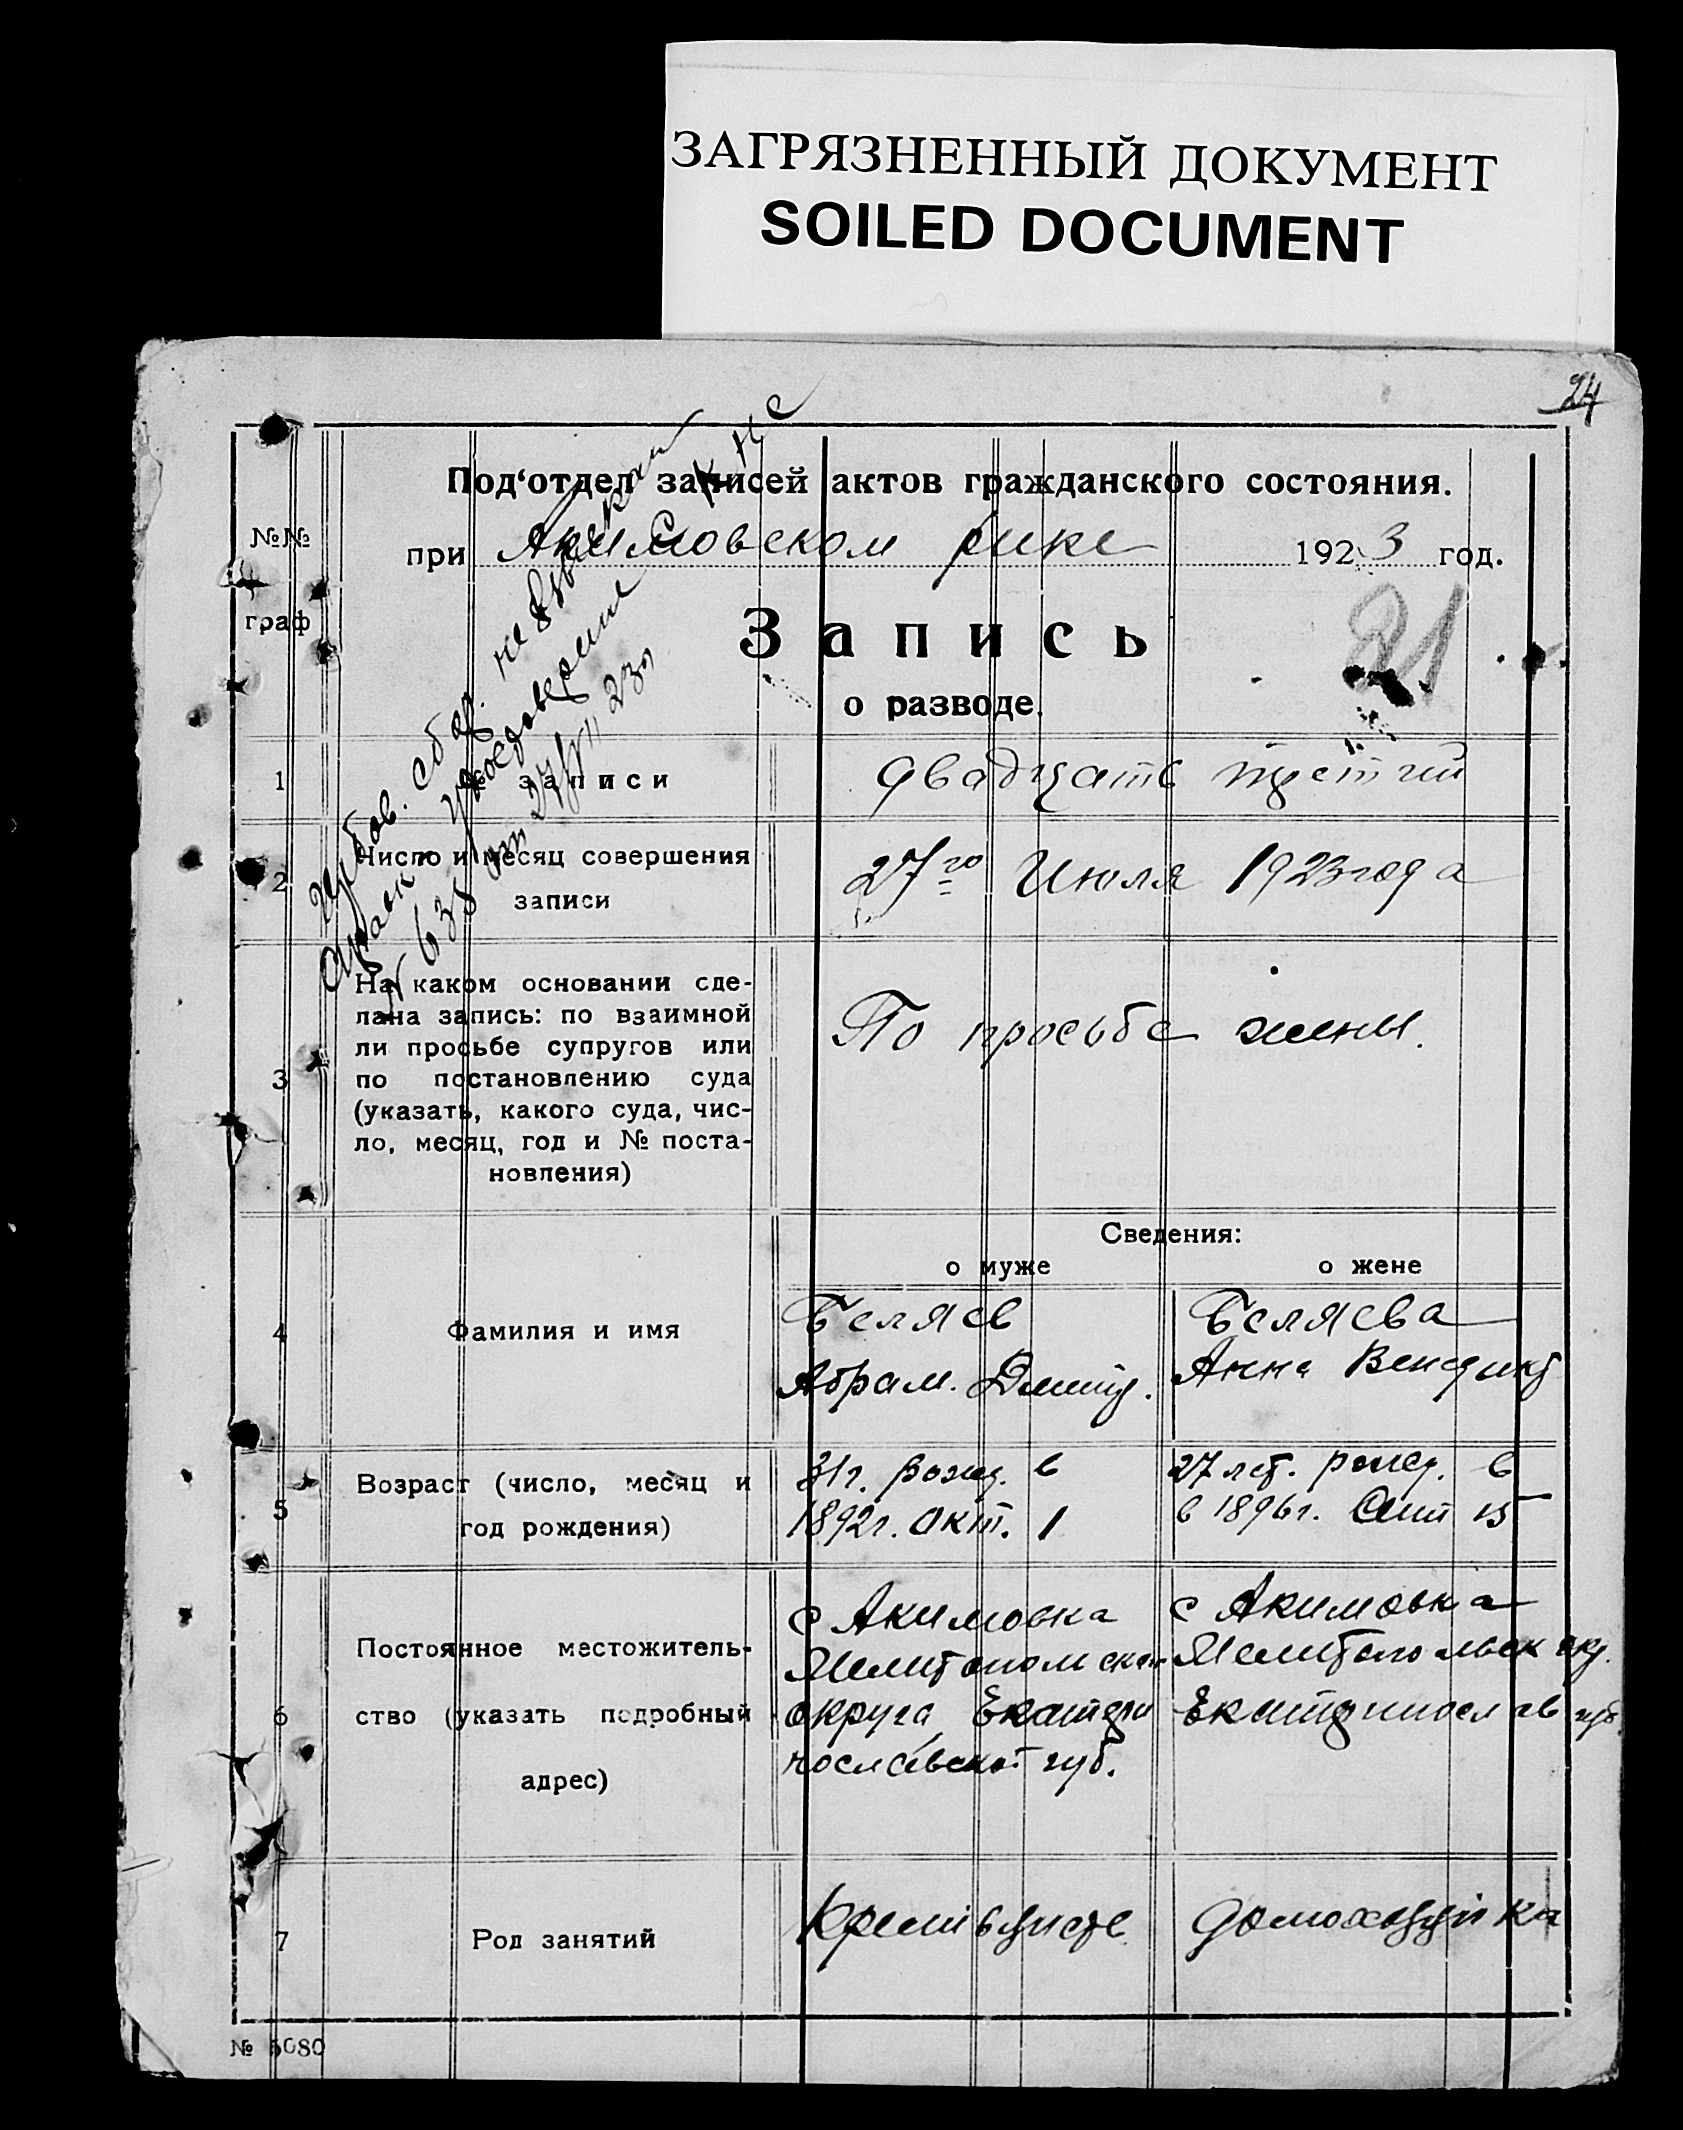 ЗАГРЯЗНЕННЫЙ ДОКУМЕНТ
SOILED DOCUMENT
24
Под'отдел записей актов гражданского состояния.
№№ граф
при Акимовском рике 1923 год.
Запись
21
о разводе.
1 № записи двадцать третий
2 Число и месяц совершения
записи
27го Июля 1923 года
3 На каком основании сде-
лана запись: по взаимной
ли просьбе супругов или
по постановлению суда
(указать, какого суда, чис-
ло, месяц, год и № поста-
новления)
По просьбе жены.
Сведения:
о муже о жене
4 Фамилия и имя
Беляев
Абрам. Дмитр.
Беляева
Анна Венедикт
5 Возраст (число, месяц и
год рождения)
31 г. рожд. в
1892 г. окт. 1
27 лет. рожд. в
в 1896 г. Сент 15
6 Постоянное местожитель-
ство (указать подробный
адрес)
с Акимовка
Мелитопольского
округа Екатери
нославской губ.
с Акимовка
Мелитопольск окр.
Екатеринослав губ.
7 Род занятий
домохозяйка
Гербов. сбор. не взыскан
удостоверение
№ 638 от 27/VII 23 г
№ 5080